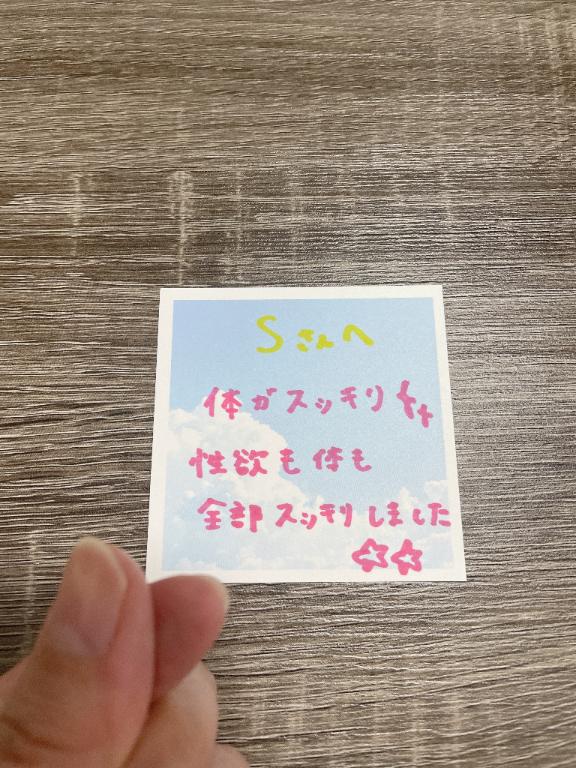 Sさんへ
体がスッキリ
性欲も体も
全部スッキリしました
☆☆